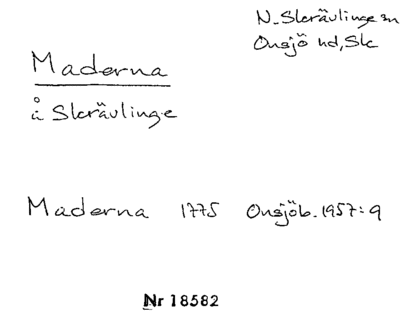 N. Skrävlinge sn
Onsjö hd, Sk
Maderna
å Skrävlinge
Maderna 1775 Onsjöb. 1957:9
Nr 18582